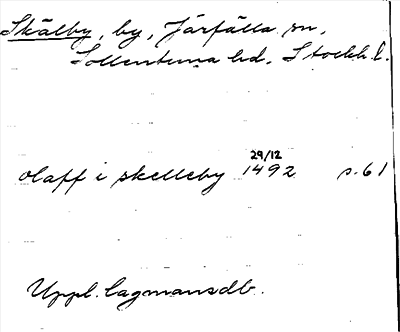 Skälby, by, Järfälla sn,
Sollentuna hd, Stockh. l.
29/12
olaff i skelleby 1492 s. 61
Uppl. lagmansdb.